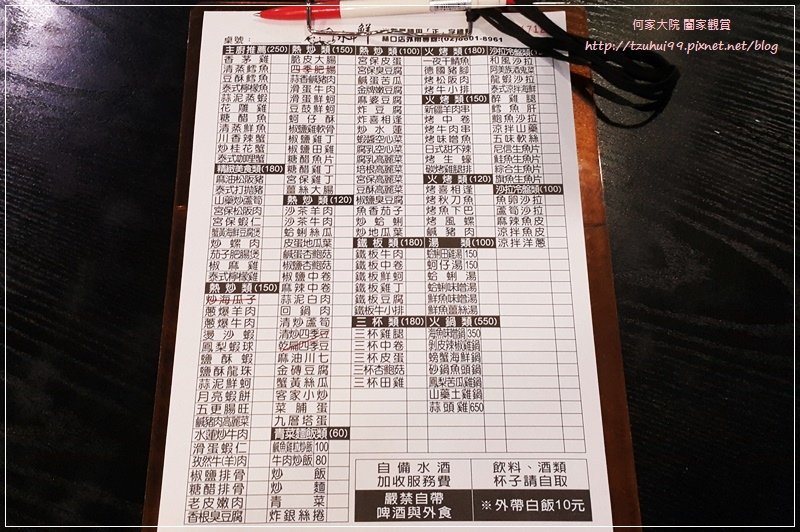 何家大院 闔家觀賞
http://tzuhui99.pixnet.net/blog
桌號：
林口店外用專線:(02)8601-8961
主廚推薦(250)
香茅雞
清蒸鱈魚
豆酥鱈魚
泰式檸檬魚
蒜泥蒸蝦
花雕雞
糖醋魚
清蒸鮮魚
川香辣蟹
炒桂花蟹
泰式咖哩蟹
精緻美食類(180)
麻油松阪豬
泰式打拋豬
山藥炒蘆筍
宮保松阪肉
宮保蝦仁
蟹黃海鮮豆腐煲
炒螺肉
茄子肥腸煲
椒麻雞
泰式檸檬雞
熱炒類(150)
炒海瓜子
蔥爆羊肉
蔥爆牛肉
燙沙蝦
鳳梨蝦球
鹽酥蝦
鹽酥龍珠
蒜泥鮮蚵
月亮蝦餅
五更腸旺
鹹豬肉高麗菜
水蓮炒牛肉
滑蛋蝦仁
孜然牛(羊)肉
椒鹽排骨
糖醋排骨
老皮嫩肉
香根臭豆腐
熱炒類(150)
脆皮大腸
四季肥腸
蒜香鹹豬肉
滑蛋牛肉
滑蛋鮮蚵
豆鼓鮮蚵
蚵仔酥
椒鹽雞軟骨
椒鹽雞丁
椒鹽田雞
糖醋魚片
糖醋雞丁
宮保雞丁
薑絲大腸
熱炒類(120)
沙茶羊肉
沙茶牛肉
蛤蜊絲瓜
皮蛋地瓜葉
鹹蛋杏鮑菇
椒鹽杏鮑菇
椒鹽中卷
麻辣中卷
蒜泥白肉
回鍋肉
清炒蘆筍
清炒四季豆
乾扁四季豆
麻油川七
金磚豆腐
蟹黃絲瓜
客家小炒
菜脯蛋
九層塔蛋
青菜麵飯類(60)
鹹魚雞粒炒飯100
牛肉炒飯80
炒飯
炒麵
青菜
炸銀絲捲
熱炒類(100)
宮保皮蛋
宮保臭豆腐
鹹蛋苦瓜
金牌嫩豆腐
麻婆豆腐
炸豆腐
炸喜相逢
炒水蓮
蝦醬空心菜
腐乳空心菜
腐乳高麗菜
培根高麗菜
宮保高麗菜
豆酥高麗菜
椒鹽臭豆腐
魚香茄子
炒蛤蜊
炒地瓜葉
鐵板類(180)
鐵板牛肉
鐵板中卷
鐵板鮮蚵
鐵板雞丁
鐵板豆腐
鐵板牛小排
三杯類(180)
三杯雞腿
三杯中卷
三杯皮蛋
三杯杏鮑菇
三杯田雞
火烤類(180)
一夜干鯖魚
德國豬腳
烤松阪肉
烤牛小排
火烤類(150)
新疆羊肉串
烤中卷
烤牛肉串
烤味噌魚
日式甜不辣
烤生蠔
碳烤雞腿排
火烤類(120)
烤喜相逢
烤秋刀魚
烤魚下巴
烤風螺
鹹豬肉
湯類(100)
蛤蜊田雞湯150
蚵仔湯150
蛤蜊湯
蛤蜊味噌湯
鮮魚味噌湯
鮮魚薑絲湯
火鍋類(550)
海鮮味噌鍋350
剝皮辣椒雞鍋
螃蟹海鮮鍋
砂鍋魚頭鍋
鳳梨苦瓜雞鍋
山藥土雞鍋
蒜頭雞650
沙拉冷盤類(150)
和風沙拉
龍蝦沙拉
泰式涼拌海鮮
醉雞腿
鱈魚肝
鮑魚沙拉
涼拌山藥
五味軟絲
尼信生魚片
鮭魚生魚片
綜合生魚片
旗魚生魚片
沙拉冷盤類(100)
魚卵沙拉
蘆筍沙拉
麻辣魚皮
涼拌魚皮
涼拌洋蔥
自備水酒
加收服務費
飲料、酒類
杯子請自取
嚴禁自帶
啤酒與外食
※外帶白飯10元